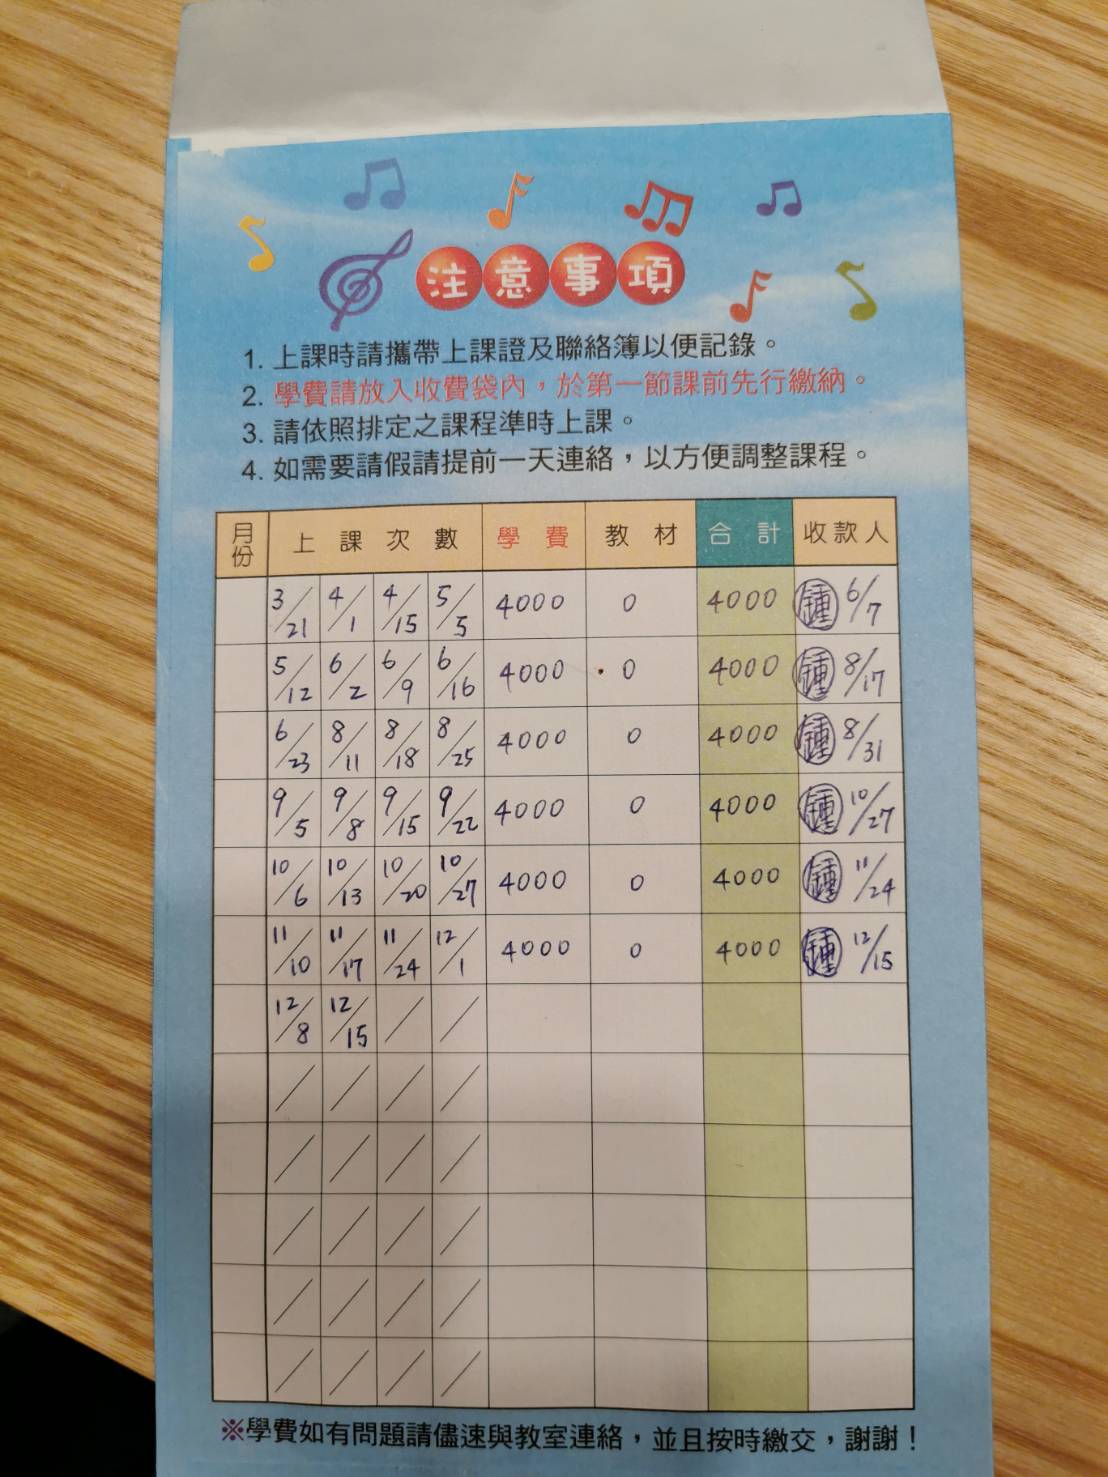 注意事項
1. 上課時請攜帶上課證及聯絡簿以便記錄。
2. 學費請放入收費袋內，於第一節課前先行繳納。
3. 請依照排定之課程準時上課。
4. 如需要請假請提前一天連絡，以方便調整課程。
月份 上課次數 學費 教材 合計 收款人
3/21 4/1 4/15 5/5 4000 0 4000 鍾 6/7
5/12 6/2 6/9 6/16 4000 0 4000 鍾 8/17
6/23 8/11 8/18 8/25 4000 0 4000 鍾 8/31
9/5 9/8 9/15 9/22 4000 0 4000 鍾 10/27
10/6 10/13 10/20 10/27 4000 0 4000 鍾 11/24
11/10 11/17 11/24 12/1 4000 0 4000 鍾 12/15
12/8 12/15 / /
/ / / /
/ / / /
/ / / /
/ / / /
/ / / /
※學費如有問題請儘速與教室連絡，並且按時繳交，謝謝！